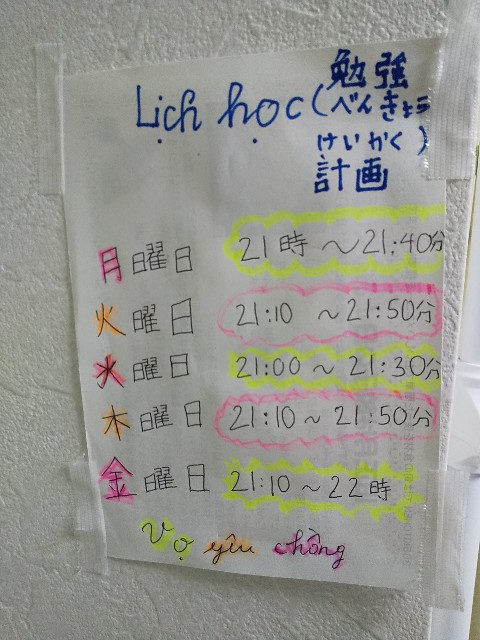 勉強
Lịch học (べんきょう
けいかく)
計画
月曜日 21時 ～21:40分
火曜日 21:10 ～21:50分
水曜日 21:00 ～ 21:30分
木曜日 21:10 ～ 21:50分
金曜日 21:10 ～ 22時
Vợ yêu chồng